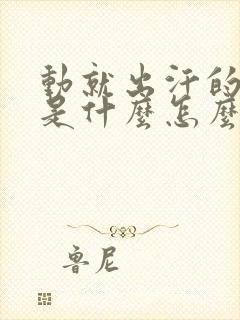 動就出汗的
是什麼怎麼
魯尼